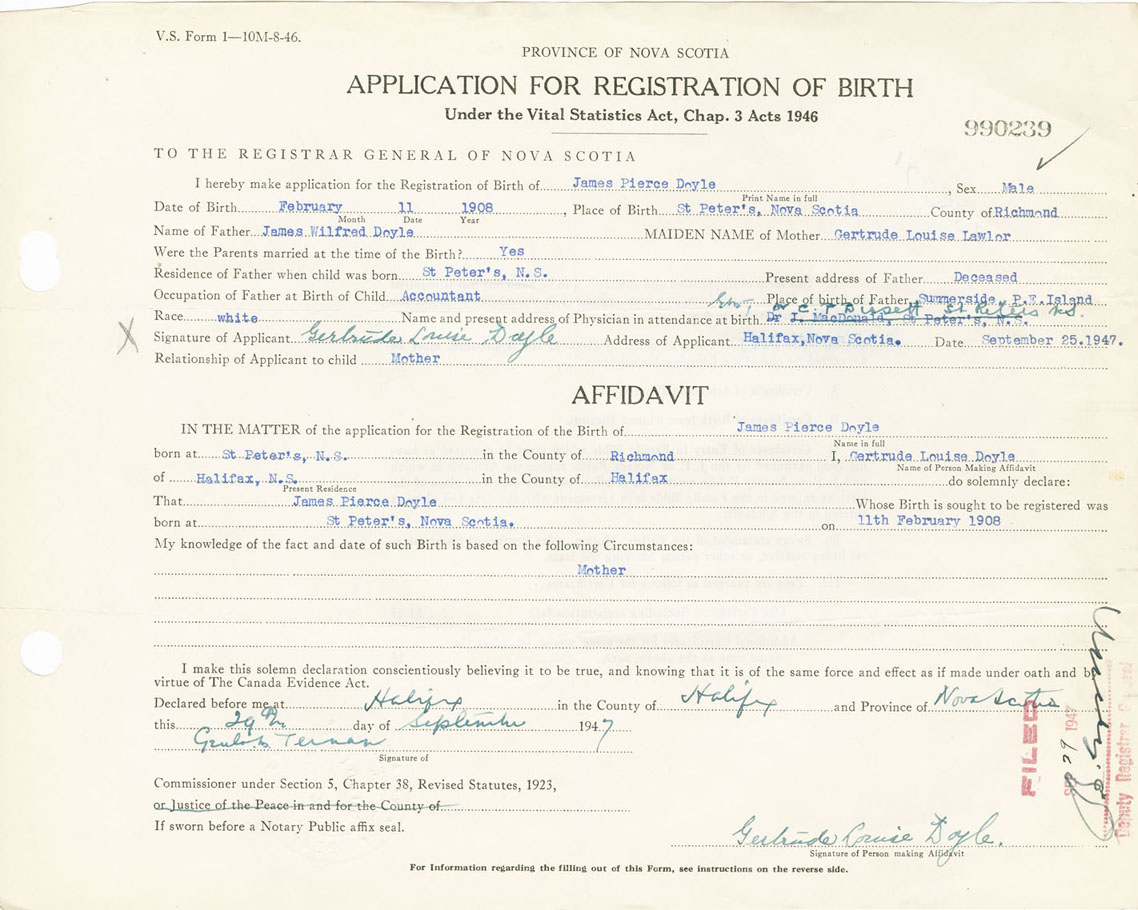 V.S. Form 1—10M-8-46.
PROVINCE OF NOVA SCOTIA
APPLICATION FOR REGISTRATION OF BIRTH
Under the Vital Statistics Act, Chap. 3 Acts 1946
990239
TO THE REGISTRAR GENERAL OF NOVA SCOTIA
I hereby make application for the Registration of Birth of James Pierce Doyle, Sex Male
Print Name in full
Date of Birth February 11 1908, Place of Birth St Peter's, Nova Scotia County of Richmond
Month Date Year
Name of Father James Wilfred Doyle MAIDEN NAME of Mother Gertrude Louise Lawlor
Were the Parents married at the time of the Birth? Yes
Residence of Father when child was born St Peter's, N.S. Present address of Father Deceased
Occupation of Father at Birth of Child Accountant Place of birth of Father Summerside, P.E.Island
or C. T Bissett St Peters N.S.
Race white Name and present address of Physician in attendance at birth Dr J. MacDonald, St Peter's, N.S.
X Signature of Applicant Gertrude Louise Doyle Address of Applicant Halifax, Nova Scotia. Date September 25.1947.
Relationship of Applicant to child Mother
AFFIDAVIT
IN THE MATTER of the application for the Registration of the Birth of James Pierce Doyle
Name in full
born at St Peter's, N.S. in the County of Richmond I, Gertrude Louise Doyle
Name of Person Making Affidavit
of Halifax, N.S. in the County of Halifax do solemnly declare:
Present Residence
That James Pierce Doyle Whose Birth is sought to be registered was
born at St Peter's, Nova Scotia. on 11th February 1908
My knowledge of the fact and date of such Birth is based on the following Circumstances:
Mother
I make this solemn declaration conscientiously believing it to be true, and knowing that it is of the same force and effect as if made under oath and by
virtue of The Canada Evidence Act.
Declared before me at Halifax in the County of Halifax and Province of Nova Scotia
this 29th day of September 1947
Ternan
Signature of
Commissioner under Section 5, Chapter 38, Revised Statutes, 1923,
or Justice of the Peace in and for the County of
If sworn before a Notary Public affix seal.
Gertrude Louise Doyle.
Signature of Person making Affidavit
For Information regarding the filling out of this Form, see instructions on the reverse side.
FILED
1947
Deputy Registrar